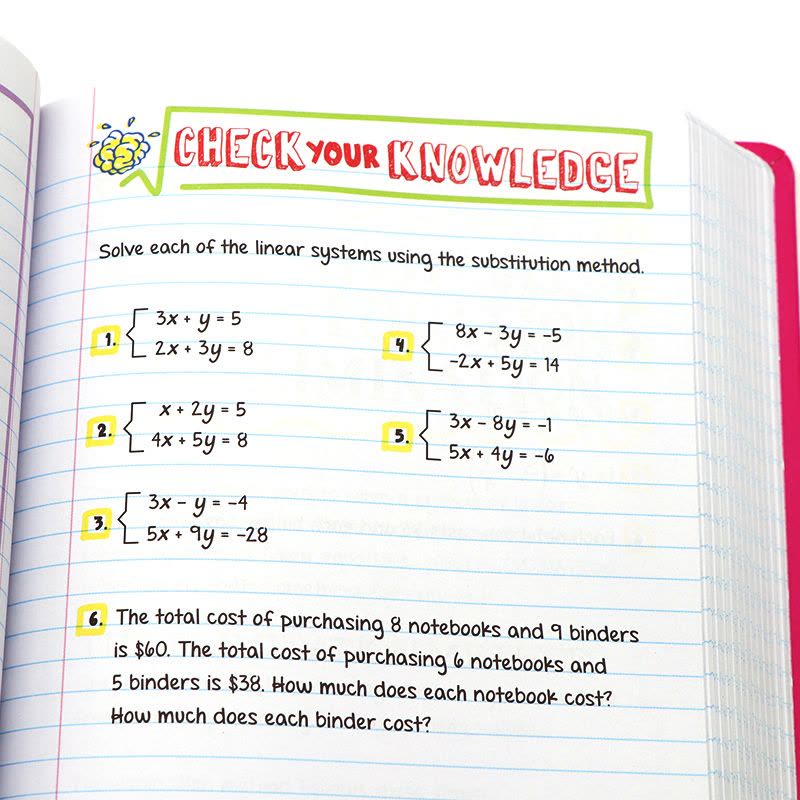 CHECK YOUR KNOWLEDGE
Solve each of the linear systems using the substitution method.
1. 3x + y = 5
2x + 3y = 8
2. x + 2y = 5
4x + 5y = 8
3. 3x - y = -4
5x + 9y = -28
4. 8x - 3y = -5
-2x + 5y = 14
5. 3x - 8y = -1
5x + 4y = -6
6. The total cost of purchasing 8 notebooks and 9 binders
is $60. The total cost of purchasing 6 notebooks and
5 binders is $38. How much does each notebook cost?
How much does each binder cost?